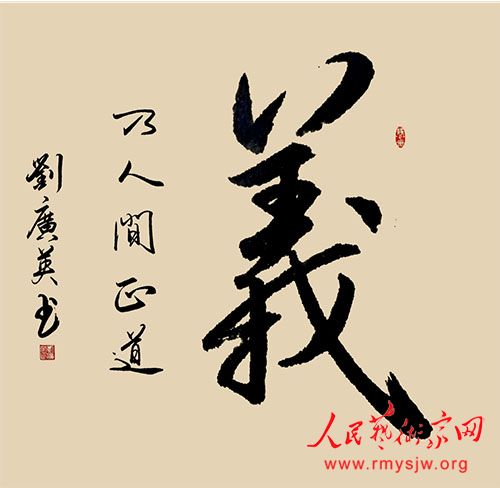 義
乃人間正道
劉廣英书
人民藝術家网
www.rmysjw.org